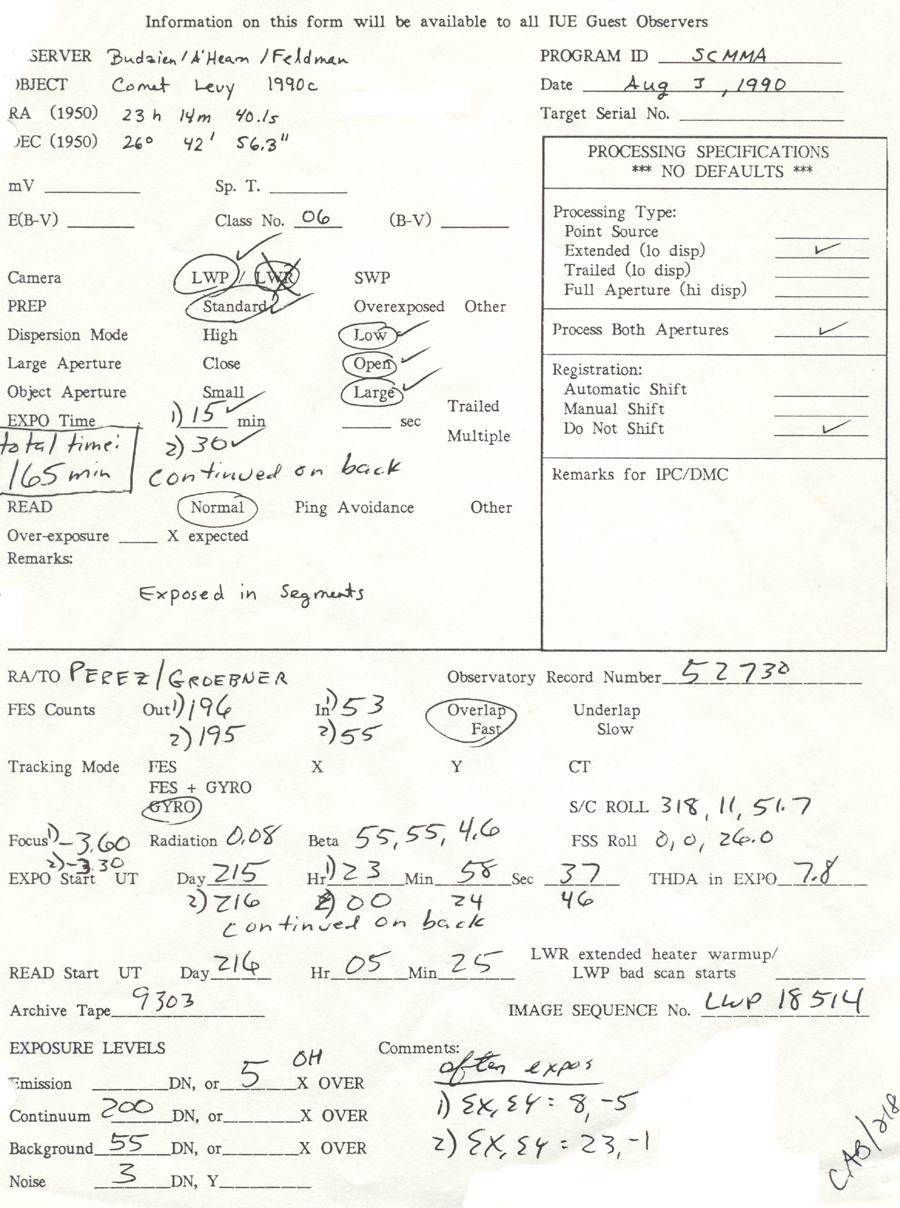 Information on this form will be available to all IUE Guest Observers
SERVER Budzien/A'Hearn/Feldman
PROGRAM ID SCMMA
BJECT Comet Levy 1990c
Date Aug 3, 1990
RA (1950) 23h 14m 40.1s
Target Serial No.
DEC (1950) 26° 42' 56.3"
PROCESSING SPECIFICATIONS
*** NO DEFAULTS ***
mV Sp. T.
E(B-V) Class No. 06 (B-V)
Processing Type:
Point Source
Extended (lo disp) ✓
Trailed (lo disp)
Full Aperture (hi disp)
Camera LWP / LWR SWP
PREP Standard Overexposed Other
Dispersion Mode High Low
Process Both Apertures ✓
Large Aperture Close Open
Object Aperture Small Large
Registration:
Automatic Shift
Manual Shift
Do Not Shift ✓
EXPO Time 1) 15 min sec Trailed
2) 30 Multiple
total time:
165 min
continued on back
Remarks for IPC/DMC
READ Normal Ping Avoidance Other
Over-exposure X expected
Remarks:
Exposed in Segments
RA/TO PEREZ/GROEBNER Observatory Record Number 52730
FES Counts Out 1) 196 In 1) 53 Overlap Underlap
2) 195 2) 55 Fast Slow
Tracking Mode FES X Y CT
FES + GYRO
GYRO S/C ROLL 318, 11, 51.7
Focus 1) -3.60 Radiation 0.08 Beta 55, 55, 4.6 FSS Roll 0, 0, 26.0
2) -3.30
EXPO Start UT Day 215 Hr 1) 23 Min 58 Sec 37 THDA in EXPO 7.8
2) 216 2) 00 24 46
continued on back
READ Start UT Day 216 Hr 05 Min 25 LWR extended heater warmup/
LWP bad scan starts
Archive Tape 9303 IMAGE SEQUENCE No. LWP 18514
EXPOSURE LEVELS Comments:
Emission DN, or 5 OH X OVER after expos
Continuum 200 DN, or X OVER 1) ΣX, ΣY = 8, -5
Background 55 DN, or X OVER 2) ΣX, ΣY = 23, -1
Noise 3 DN, Y
CAB/218